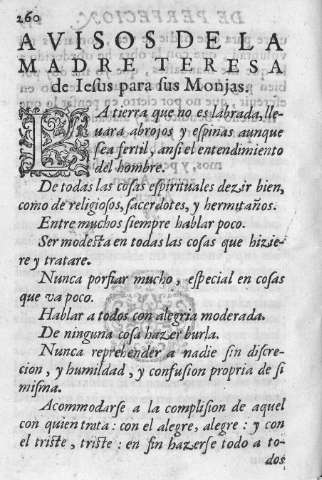 260
AVISOS DE LA
MADRE TERESA
de Iesus para sus Monjas.
LA tierra que no es labrada, lle-
uara abrojos y espinas aunque
sea fertil, ansi el entendimiento
del hombre.
De todas las cosas espirituales dezir bien,
como de religiosos, sacerdotes, y hermitaños.
Entre muchos siempre hablar poco.
Ser modesta en todas las cosas que hizie-
re y tratare.
Nunca porfiar mucho, especial en cosas
que va poco.
Hablar a todos con alegria moderada.
De ninguna cosa hazer burla.
Nunca reprehender a nadie sin discre-
cion, y humildad, y confusion propria de si
misma.
Acommodarse a la complision de aquel
con quien trata: con el alegre, alegre: y con
el triste, triste: en fin hazerse todo a to-
dos